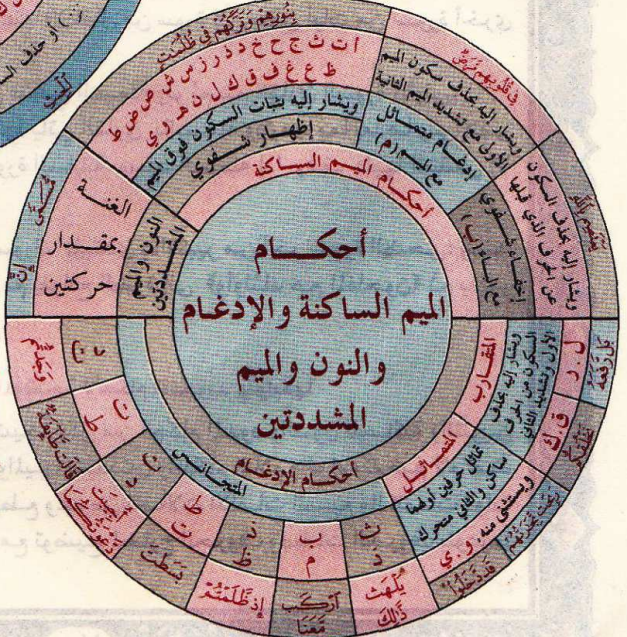 أحكــام
الميم الساكنة والإدغام
والنون والميم
المشددتين
أحكام الميم الساكنة
إظهار شـفوي
ويشار إليه بثبات السكون فوق الميم
أ ت ث ج ح خ د ذ ر ز س ش ص ض ط
ظ ع غ ف ق ك ل ن هـ و ي
إدغام متماثل
مع الميم (م)
ويشار إليه بحذف سكون الميم
الأولى مع تشديد الميم الثانية
فِي قُلُوبِهِم مَّرَضٌ
إخفاء شـفوي
مع الباء (ب)
ويشار إليه بحذف السكون
عن الحرف الذي قبلها
النون والميم
المشددتين
الغنـة
بمقـدار
حركتين
إِنَّ
أحكام الإدغـام
المتقارب
ويشار إليه بحذف
السكون من الحرف
الأول وتشديد الثاني
ل . ر
ق . ك
المتماثل
تماثل حرفين أولهما
ساكن والثاني متحرك
ويستثنى منه . و . ي
قَد دَّخَلُوا
المتجانس
ث
ذ
يَلْهَث
ذَّٰلِكَ
ب
م
ٱرْكَب
مَّعَنَا
ذ
ظ
إِذ ظَّلَمْتُمْ
ط
ت
بَسَطتَ
ت
د
أُجِيبَت
دَّعْوَتُكُمَا
ت
ط
قَالَت طَّآئِفَةٌ
د
ت